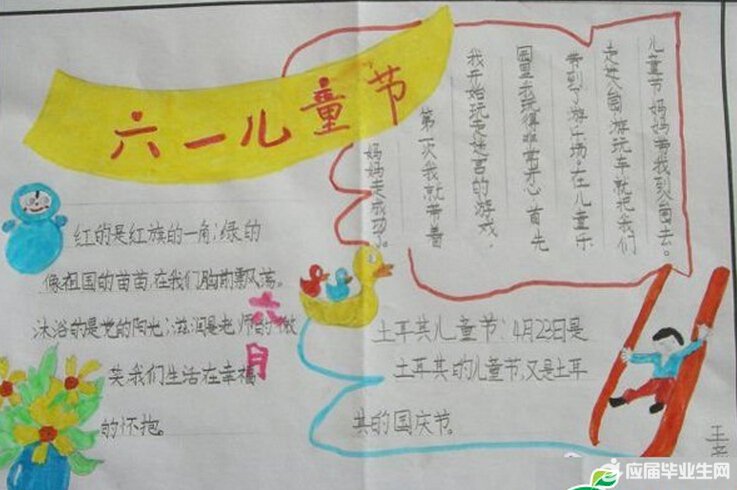 六一儿童节
儿童节妈妈带我到公园去。
走进公园游玩车就把我们
带到了游乐场。在儿童乐
园里我玩得非常开心首先
我开始玩走迷宫的游戏,
第一次我就带着
妈妈走成功了。
红的是红族的一角;绿的
像祖国的苗苗,在我们胸前飘荡。
沐浴的是党的阳光;滋润是老师的微
笑我们生活在幸福
的怀抱。
六月
土耳其儿童节:4月22日是
土耳其的儿童节,又是土耳
其的国庆节。
王
应届毕业生网